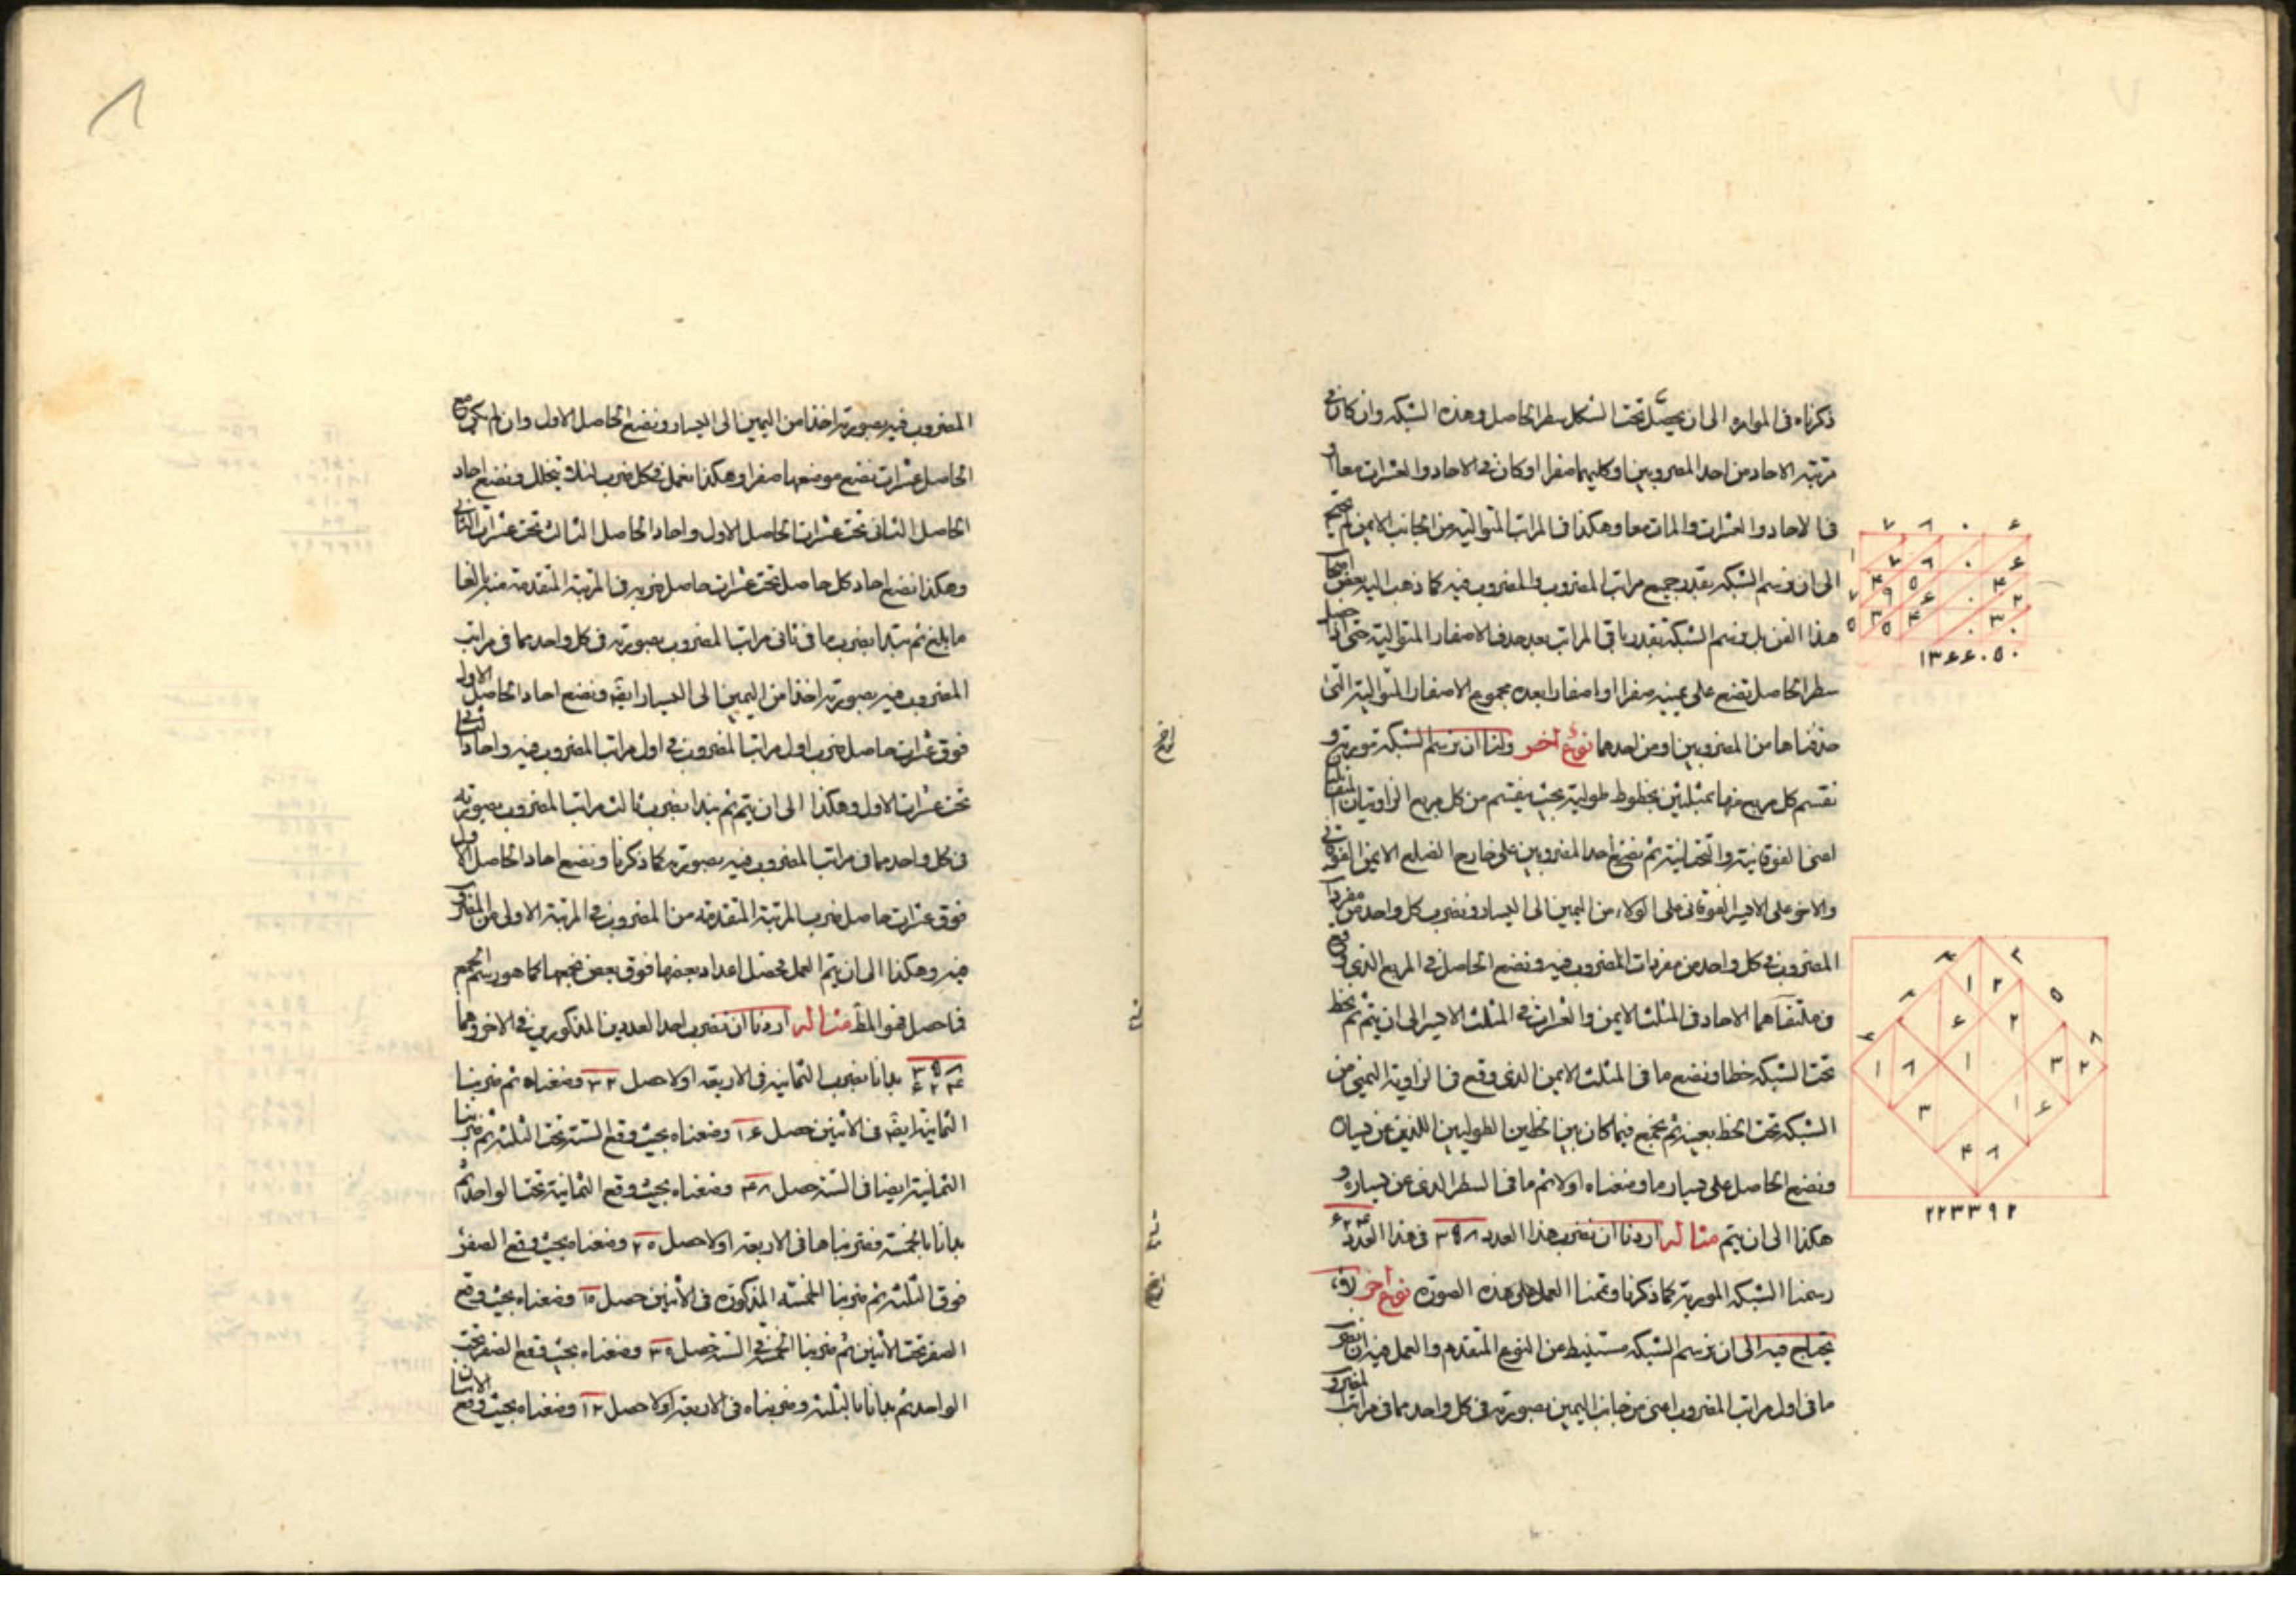 ذكرناه فى الموامرة الى ان يحصل تحت الشكل سطر الحاصل وهذه الشبكة وان كان فى
مرتبة الاحاد من احد المضروبين او كليهما صفرا او كان فى الاحاد والعشرات معا او
فى الاحاد والعشرات والمات معا وهكذا فى المراتب المتوالية من الجانب الايمن لم نحتج
الى ان نرسم الشبكة بقدر جميع مراتب المضروب والمضروب فيه كما ذهب اليه بعض اصحاب
هذا الفن بل نرسم الشبكة بقدر باقى المراتب بعد حذف الاصفار المتوالية حتى اذا حصل
سطر الحاصل نضع على يمينه صفرا او اصفارا بعده مجموع الاصفار المتوالية التى
حذفناها من المضروبين او من احدهما نوع اخر ولنا ان نرسم الشبكة موربة و
نقسم كل مربع منها بمثلثين بخطوط طولية بحيث ينقسم من كل مربع الزاويتان المتقابلتان
اعنى الفوقانية والتحتانية ثم نضع احد المضروبين على خارج الضلع الايمن الفوقانى
والاخر على الايسر الفوقانى على الولاء من اليمين الى اليسار ونضرب كل واحد من مفردات
المضروب فى كل واحد من مفردات المضروب فيه ونضع الحاصل فى المربع الذى وقع
فى ملتقاهما الاحاد فى المثلث الايمن والعشرات فى المثلث الايسر الى ان يتم ثم نخط
تحت الشبكة خطا ونضع ما فى المثلث الايمن الذى وقع فى الزاوية اليمنى من
الشبكة تحت الخط بعينه ثم نجمع فيما كان بين الخطين الطوليين اللذين عن يساره
ونضع الحاصل على يسار ما وضعناه اولا ثم ما فى السطر الذى عن يساره و
هكذا الى ان يتم مثاله اردنا ان نضرب هذا العدد ٣٥٨ فى هذا العدد ۶۲۴
رسمنا الشبكة الموربة كما ذكرنا وتممنا العمل على هذه الصورة نوع اخر لا
يحتاج فيه الى ان نرسم الشبكة مستنبط من النوع المتقدم والعمل فيه ان نضرب
ما فى اول مراتب المضروب اعنى من جانب اليمين بصورته فى كل واحد مما فى مراتب
٧ ٨ ٠ ۶
١٣۶۶٠٥٠
٢٢٣٣٩٢
المضروب فيه بصورته اخذا من اليمين الى اليسار ونضع الحاصل الاول وان لم يكن مع
الحاصل عشرات نضع موضعها صفرا وهكذا نعمل فى كل ضرب لئلا يختل ونضع احاد
الحاصل الثانى تحت عشرات الحاصل الاول واحاد الحاصل الثالث تحت عشرات الثانى
وهكذا نضع احاد كل حاصل تحت عشرات حاصل ضربه فى المرتبة المتقدمة منه بالغا
ما بلغ ثم نبتدا بضرب ما فى ثانى مراتب المضروب بصورته فى كل واحد مما فى مراتب
المضروب فيه بصورته اخذا من اليمين الى اليسار ايضا ونضع احاد الحاصل الاول
فوق عشرات حاصل ضرب اول مراتب المضروب فى اول مراتب المضروب فيه واحاد الثانى
تحت عشرات الاول وهكذا الى ان يتم ثم نبدا بضرب ثالث مراتب المضروب بصورته
فى كل واحد مما فى مراتب المضروب فيه بصورته كما ذكرنا ونضع احاد الحاصل الاول
فوق عشرات حاصل ضرب المرتبة المتقدمة من المضروب فى المرتبة الاولى من المضروب
فيه وهكذا الى ان يتم العمل فيحصل اعداد بعضها فوق بعض نجمعها كما هو رسم الجمع
فما حصل فهو المط مثاله اردنا ان نضرب احد العددين المذكورين فى الاخر وهما
٣٥٨ ۶۲۴ بدانا بضرب الثمانية فى الاربعة اولا حصل ٣٢ وضعناه ثم ضربنا
الثمانية ايضا فى الاثنين حصل ١۶ وضعناه بحيث وقع الستة تحت الثلثة ثم ضربنا
الثمانية ايضا فى الستة حصل ۴٨ وضعناه بحيث وقع الثمانية تحت الواحد ثم
بدانا بالخمسة فضربناها فى الاربعة اولا حصل ٢٠ وضعناه بحيث وقع الصفر
فوق الثلثة ثم ضربنا الخمسة المذكورة فى الاثنين حصل ١٠ وضعناه بحيث وقع
الصفر تحت الاثنين ثم ضربنا الخمسة فى الستة حصل ٣٠ وضعناه بحيث وقع الصفر تحت
الواحد ثم بدانا بالثلثة وضربناه فى الاربعة اولا حصل ١٢ وضعناه بحيث وقع الاثنان